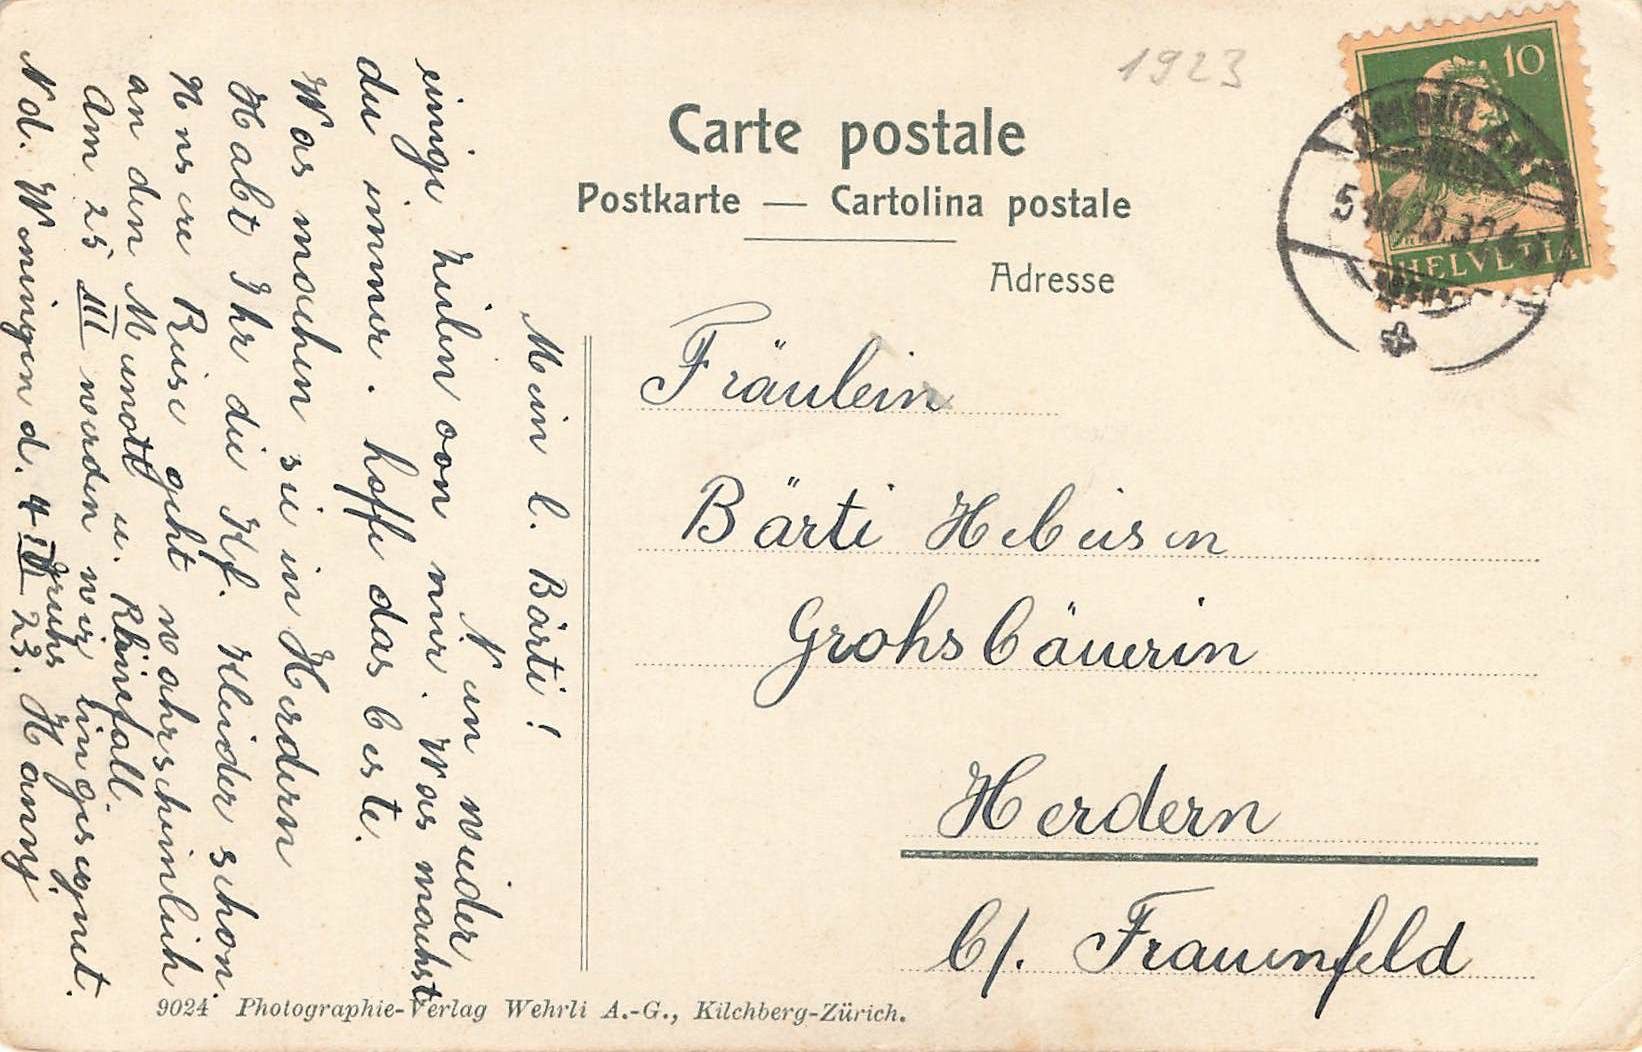 1923
Carte postale
Postkarte — Cartolina postale
Adresse
10
HELVETIA
AMBULANT
Fräulein
Bärti Hebeisen
Grohsbäuerin
Herdern
b/. Frauenfeld
Mein l. Bärti!
Nun wieder
einige Zeilen von mir. Was machst
du immer. hoffe das beste.
Was machen sie in Herdern
Habt Ihr die Kf. Kleider schon.
Unsere Reise geht wahrscheinlich
an den Munott u. Rheinfall.
Am 25 III werden wir eingesegnet.
Gruhs Hanny
Nd. Weningen d. 4 III 23.
9024 Photographie-Verlag Wehrli A.-G., Kilchberg-Zürich.